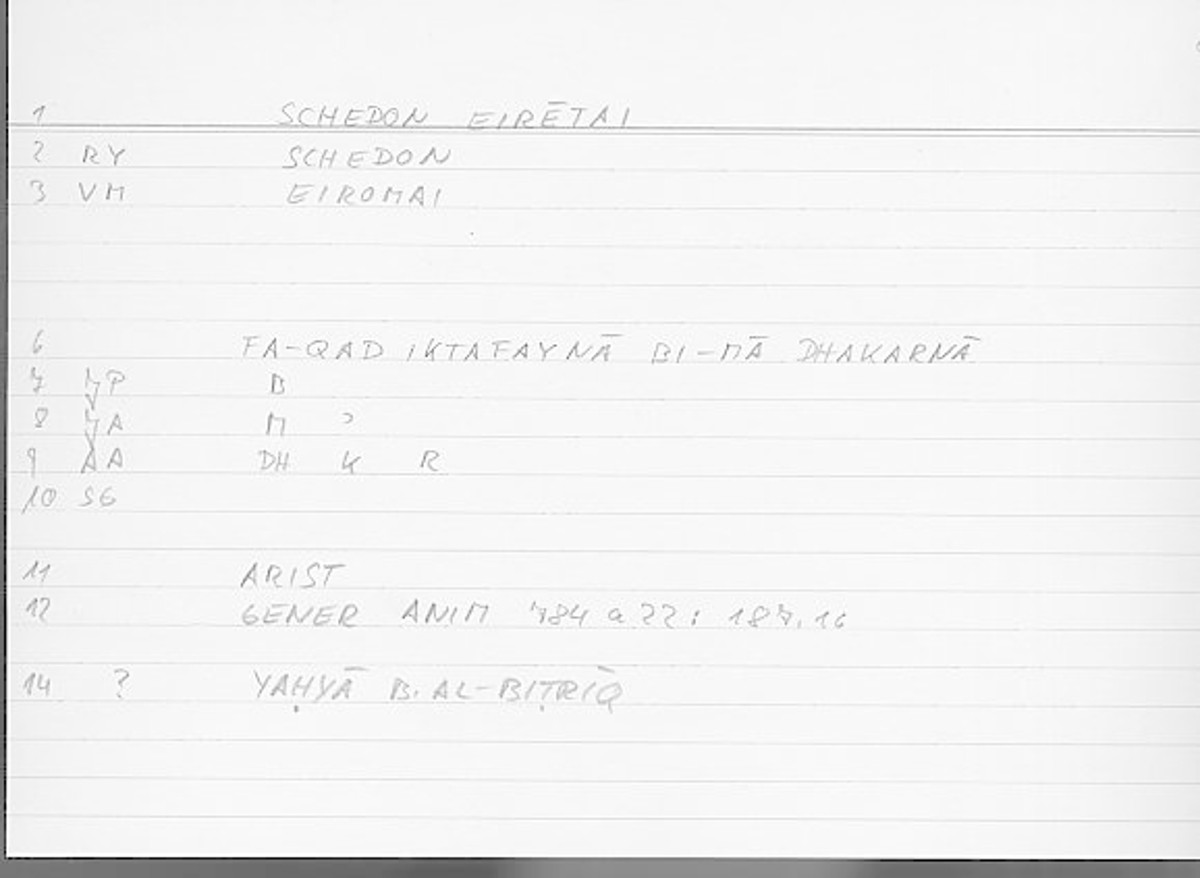 1 SCHEDON EIRĒTAI
2 RY SCHEDON
3 VM EIROMAI
6 FA-QAD IKTAFAYNĀ BI-MĀ DHAKARNĀ
7 P B
8 A M ʾ
9 AA DH K R
10 SG
11 ARIST
12 GENER ANIM 784 a 22 : 187.16
14 ? YAḤYĀ B. AL-BIṬRĪQ